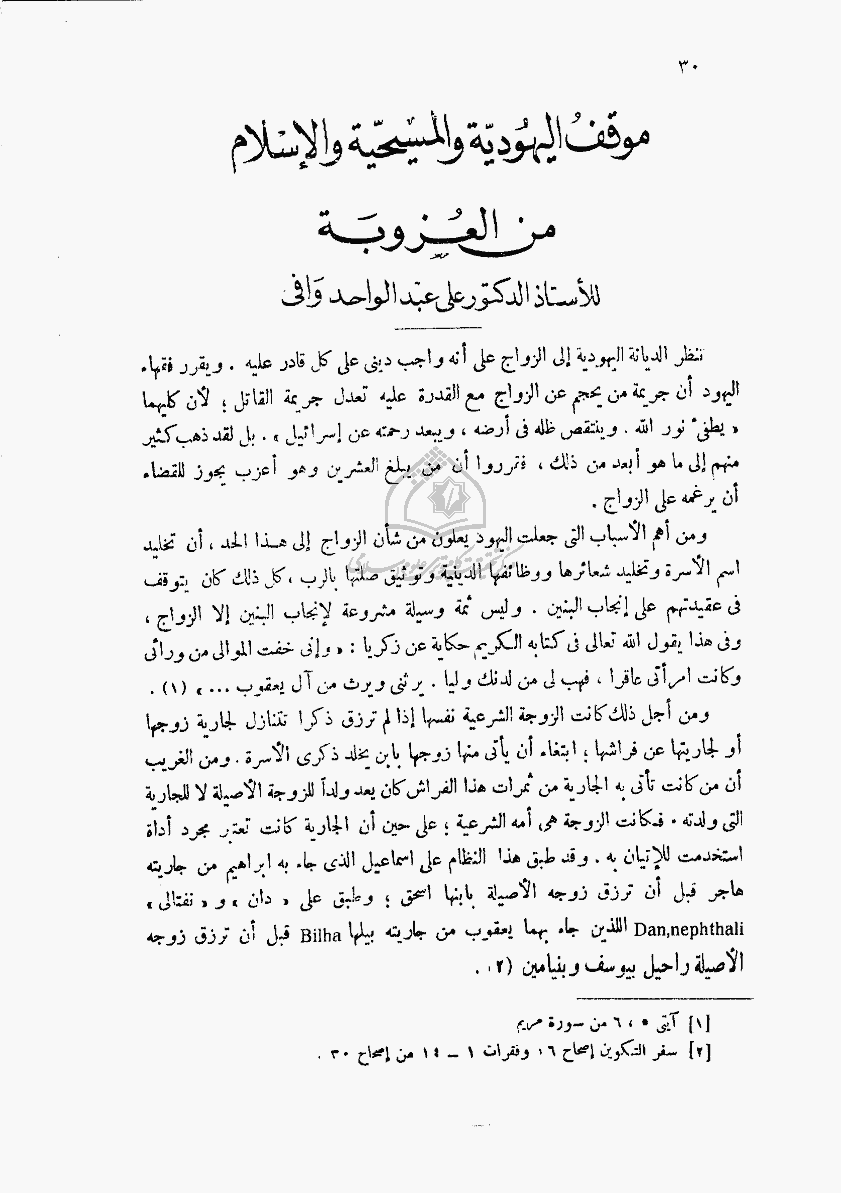 ٣٠
موقف اليهودية والمسيحية والإسلام
من العزوبة
للأستاذ الدكتور على عبد الواحد وافى
تنظر الديانة اليهودية إلى الزواج على أنه واجب دينى على كل قادر عليه . ويقرر فقهاء
اليهود أن جريمة من يحجم عن الزواج مع القدرة عليه تعدل جريمة القاتل ؛ لأن كليهما
« يطفىء نور الله . وينتقص ظله فى أرضه ، ويبعد رحمته عن إسرائيل » . بل لقد ذهب كثير
منهم إلى ما هو أبعد من ذلك ، فقرروا أن من يبلغ العشرين وهو أعزب يجوز للقضاء
أن يرغمه على الزواج .
ومن أهم الأسباب التى جعلت اليهود يعلون من شأن الزواج إلى هذا الحد ، أن تخليد
اسم الأسرة وتخليد شعائرها ووظائفها الدينية وتوثيق صلتها بالرب ، كل ذلك كان يتوقف
فى عقيدتهم على إنجاب البنين . وليس ثمة وسيلة مشروعة لإنجاب البنين إلا الزواج ،
وفى هذا يقول الله تعالى فى كتابه الكريم حكاية عن زكريا : « وإنى خفت الموالى من ورائى
وكانت امرأتى عاقرا ، فهب لى من لدنك وليا . يرثنى ويرث من آل يعقوب ... » (١) .
ومن أجل ذلك كانت الزوجة الشرعية نفسها إذا لم ترزق ذكرا تتنازل لجارية زوجها
أو لجاريتها عن فراشها ؛ ابتغاء أن يأتى منها زوجها بابن يخلد ذكرى الأسرة . ومن الغريب
أن من كانت تأتى به الجارية من ثمرات هذا الفراش كان يعد ولداً للزوجة الأصيلة لا للجارية
التى ولدته . فكانت الزوجة هى أمه الشرعية ؛ على حين أن الجارية كانت تعتبر مجرد أداة
استخدمت للإتيان به . وقد طبق هذا النظام على اسماعيل الذى جاء به ابراهيم من جاريته
هاجر قبل أن ترزق زوجه الأصيلة بابنها اسحق ؛ وطبق على « دان » و « نفتالى »
Dan,nephthali اللذين جاء بهما يعقوب من جاريته بيلها Bilha قبل أن ترزق زوجه
الأصيلة راحيل بيوسف وبنيامين (٢) .
[١] آيتى ٥ ، ٦ من سورة مريم
[٢] سفر التكوين إصحاح ١٦ وفقرات ١ – ١٤ من إصحاح ٣٠ .